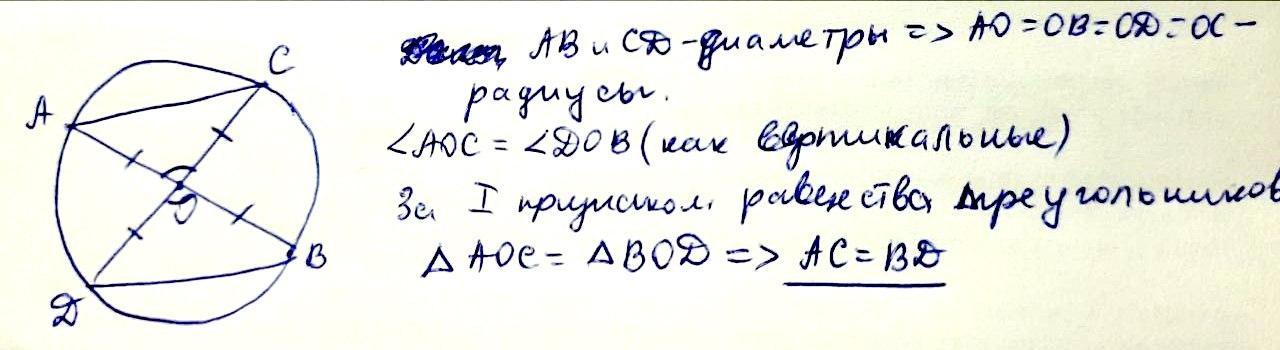 AB и CD - диаметры => AO = OB = OD = OC -
радиусы.
∠AOC = ∠DOB (как вертикальные)
За I признаком равенства треугольников
△AOC = △BOD => AC = BD
C
A
O
B
D